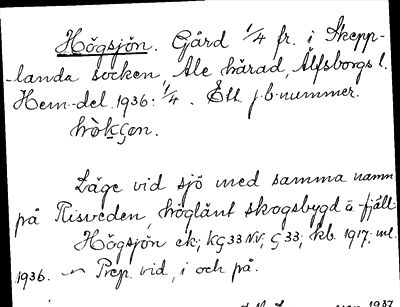 Högsjön. Gård 1/4 fr. i Skepp-
-landa socken, Ale härad, Älfsborgs l.
Hem. del. 1936: 1/4. Ett j.b. nummer.
Läge vid sjö med samma namn
på Risveden, höglänt skogsbygd å fjäll.
Högsjön ek; KG 33 NV, G 33; kb. 1917; ml.
1936. Prep. vid, i och på.
1937